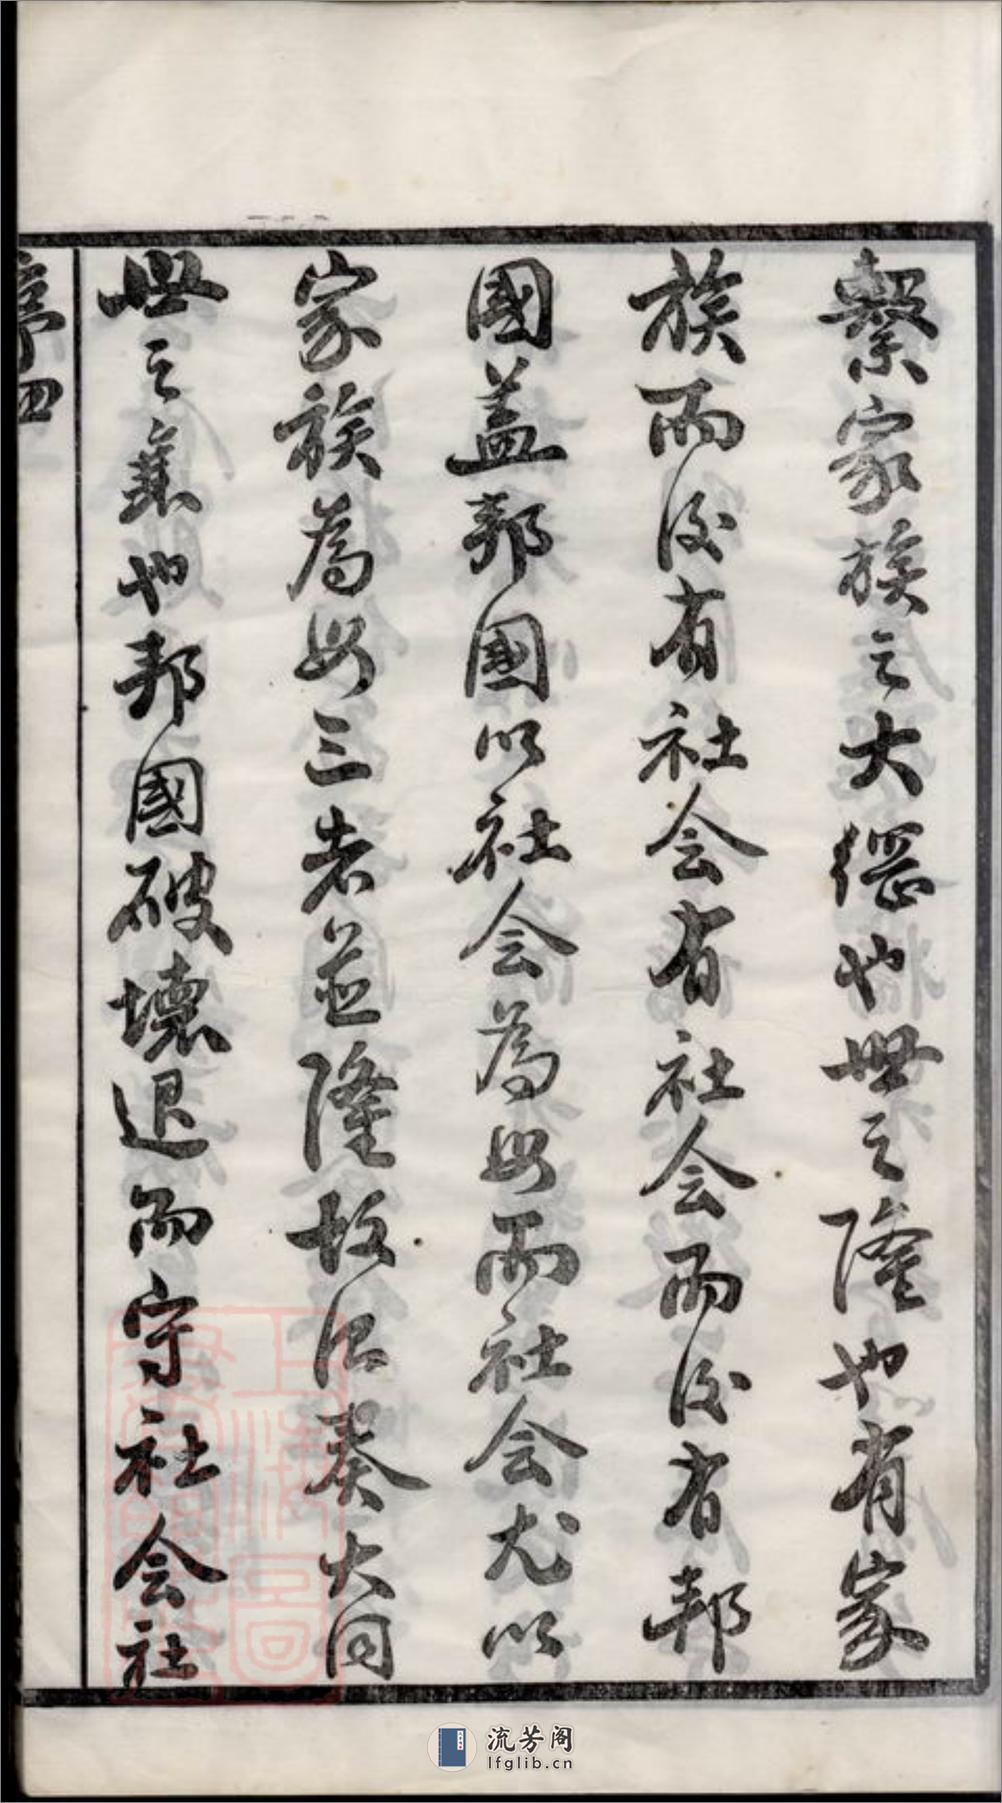 繫家族之大綱也世之隆也有家
族而後有社会有社会而後有邦
國盖邦國以社会為母而社会尤以
家族為母三者並隆故治奏大同
世之衰也邦國破壞退而守社会社
序 四
上海圖
流芳阁
lfglib.cn